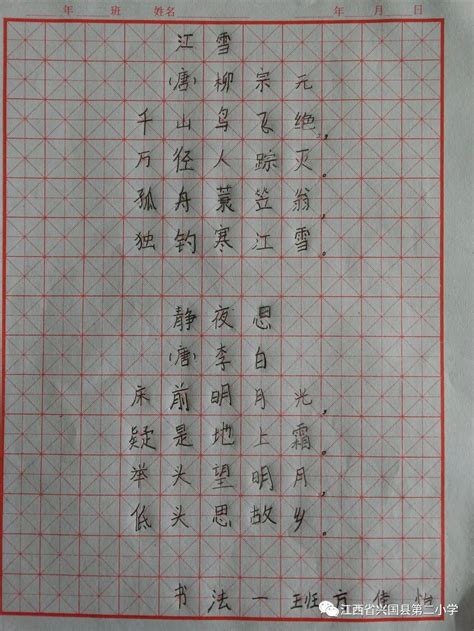 年 班 姓名 年 月 日
江雪
(唐)柳宗元
千山鸟飞绝，
万径人踪灭。
孤舟蓑笠翁，
独钓寒江雪。
静夜思
(唐)李白
床前明月光，
疑是地上霜。
举头望明月，
低头思故乡。
书法一班方倩怡
江西省兴国县第二小学